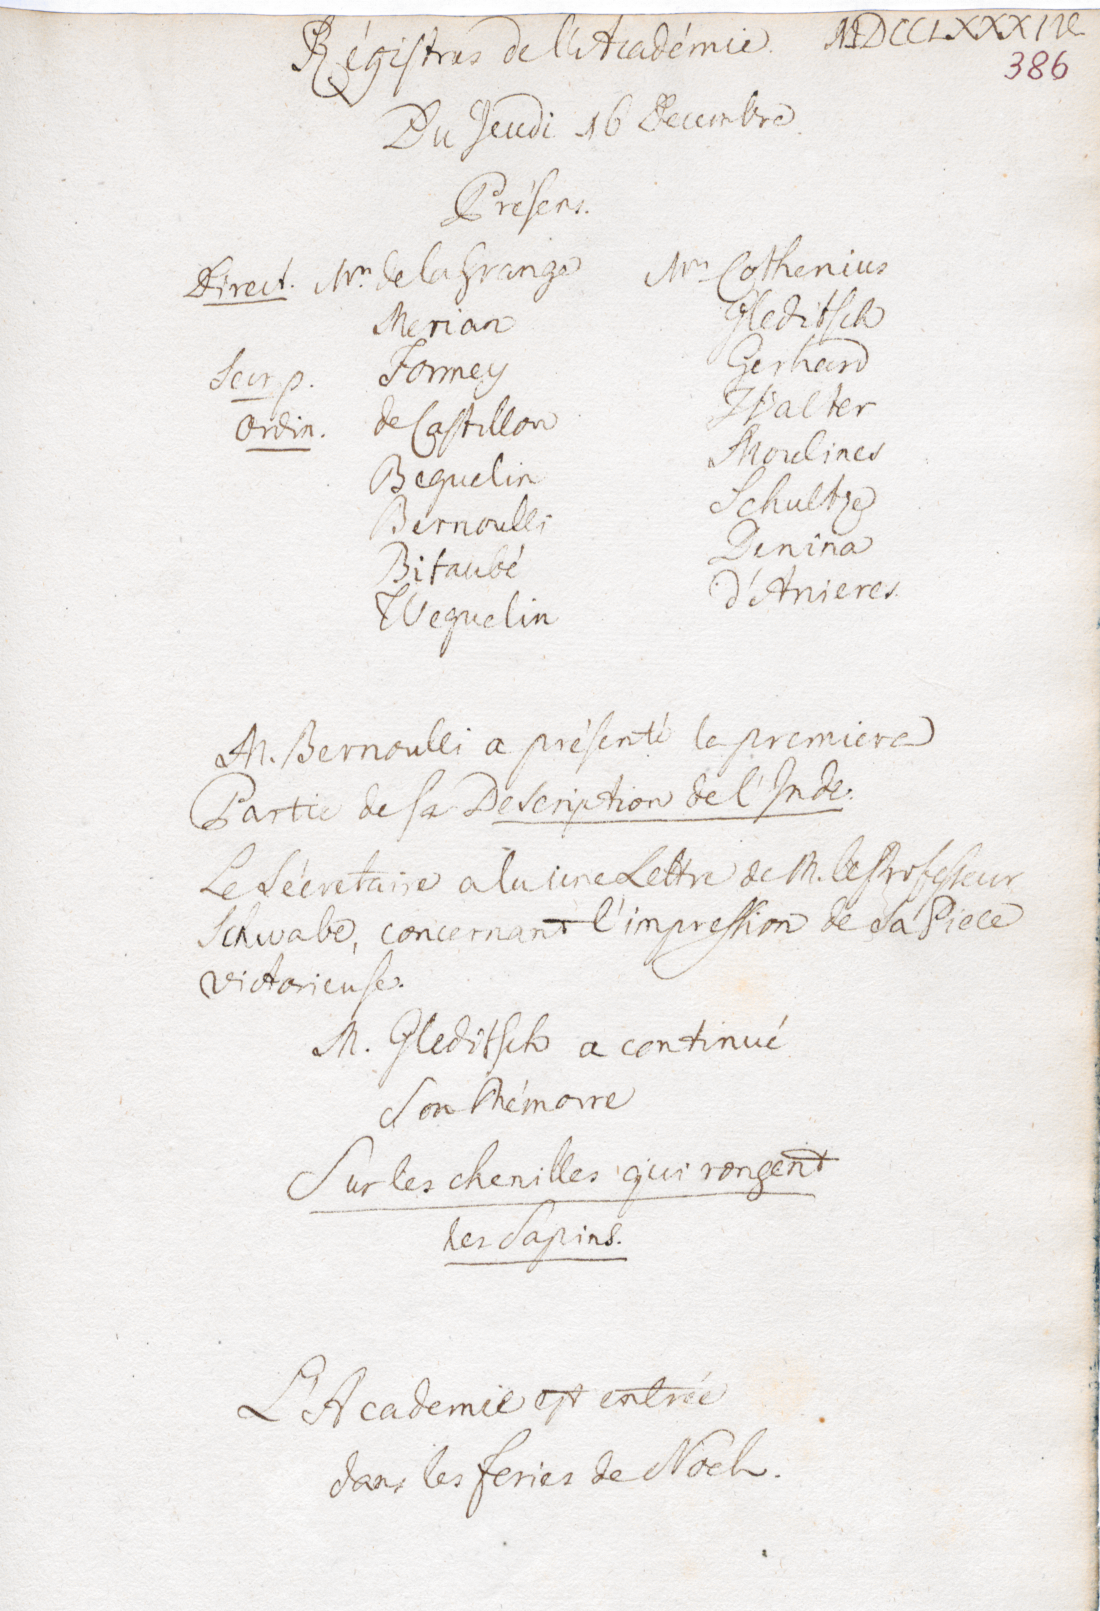 Régistres de l'Académie. MDCCLXXXIV.
386
Du Jeudi 16 Decembre.
Présens.
Direct. Mrs. de la Grange
Merian
Secr. p. Formey
Ordin. de Castillon
Beguelin
Bernoulli
Bitaubé
Weguelin
Mrs Cothenius
Gleditsch
Gerhard
Walter
Moulines
Schultze
Denina
d'Anieres.
M. Bernoulli a présenté la premiere
Partie de sa Description de l'Inde.
Le Sécretaire a lu une Lettre de M. le Professeur
Schwabe, concernant l'impression de sa Piece
victorieuse.
M. Gleditsch a continué
son Mémoire
Sur les chenilles qui rongent
les Sapins.
L'Academie est entrée
dans les feries de Noel.